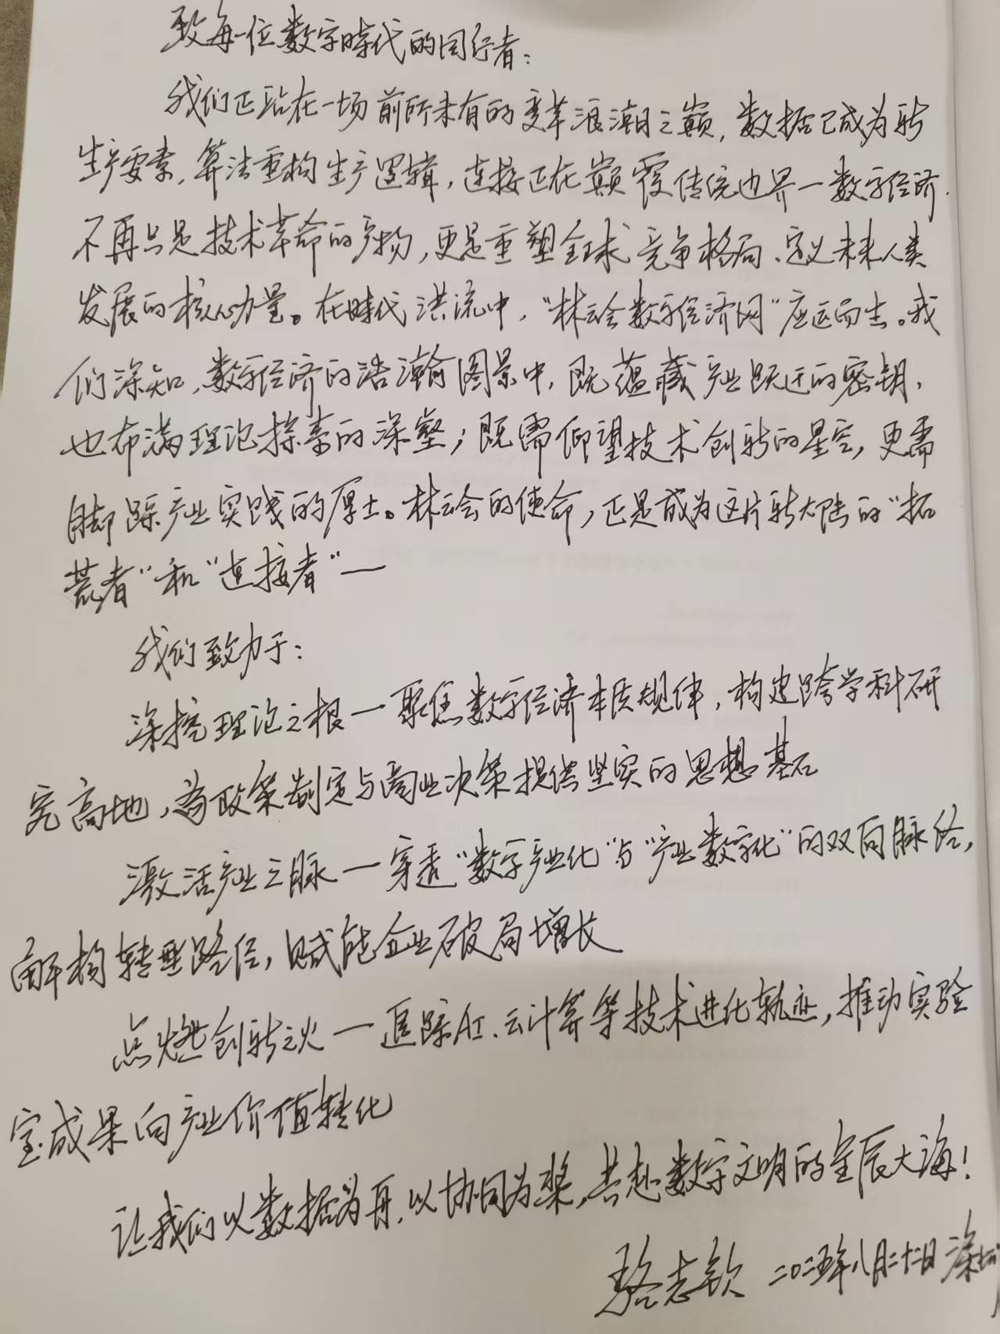 致每一位数字時代的同行者:
我们正站在一场前所未有的变革浪潮之巅,数据已成为新
生产要素,算法重构生产逻辑,连接正在颠覆传统边界一数字经济
不再只是技术革命的产物,更是重塑全球竞争格局、定义未来人类
发展的核心力量。在時代洪流中,“林云会数字经济网”应运而生。我
们深知,数字经济的浩瀚图景中,既蕴藏产业跃迁的密钥,
也布满理论探索的深壑;既需仰望技术创新的星空,更需
脚踩产业实践的厚土。林云会的使命,正是成为这片新大陆的“拓
荒者”和“连接者”一
我们致力于:
深挖理论之根一聚焦数字经济本质规律,构建跨学科研
究高地,为政策制定与商业决策提供坚实的思想基石
激活产业之脉一穿透“数字产业化”与“产业数字化”的双向脉络,
解构转型路径,赋能企业破局增长
点燃创新之火一追踪AI、云计算等技术进化轨迹,推动实验
室成果向产业价值转化
让我们以数据为舟,以协同为桨,共赴数字文明的星辰大海!
骆志钦 二〇二五年八月二十二日 深圳